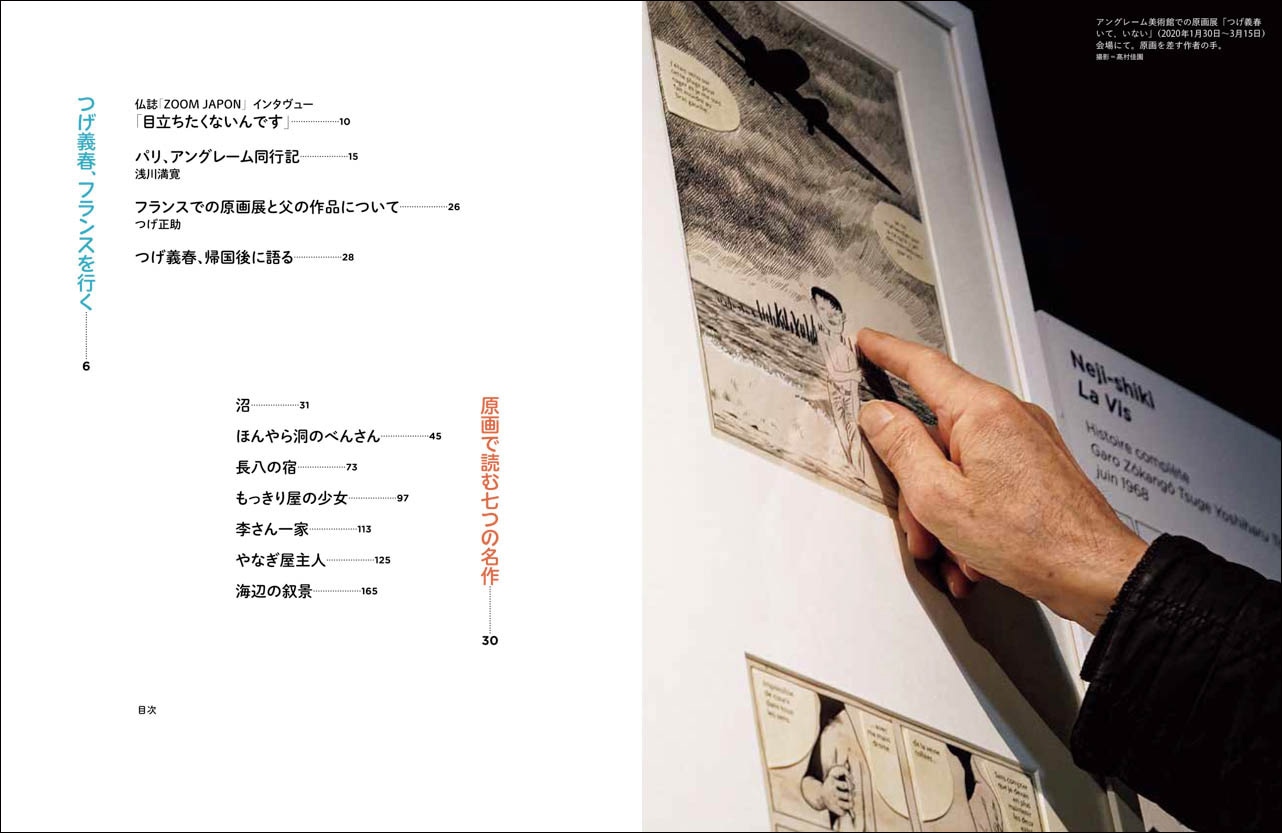 つげ義春、フランスを行く 6
仏誌「ZOOM JAPON」 インタヴュー
「目立ちたくないんです」 10
パリ、アングレーム同行記 15
浅川満寛
フランスでの原画展と父の作品について 26
つげ正助
つげ義春、帰国後に語る 28
原画で読む七つの名作 30
沼 31
ほんやら洞のべんさん 45
長八の宿 73
もっきり屋の少女 97
李さん一家 113
やなぎ屋主人 125
海辺の叙景 165
目次
アングレーム美術館での原画展「つげ義春
いて、いない」（2020年1月30日〜3月15日）
会場にて。原画を差す作者の手。
撮影＝髙村佳園
Neji-shiki
La Vis
Histoire complète
Garo Zôkangô Tsuge Yoshiharu
juin 1968
Impossible
de courir
dans tous
les sens.
...avec
ma main
droite.
de la veine